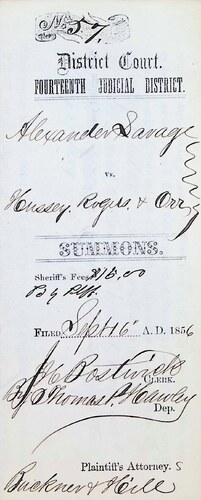 No. 57.
District Court.
FOURTEENTH JUDICIAL DISTRICT.
Alexander Savage
vs.
Hussey, Rogers & Orr
SUMMONS.
Sheriff's Fees, $15.00
By Plff.
FILED Sept 16 A. D. 1856
Bostwick
CLERK.
By Thomas P. Hawley
Dep.
Plaintiff's Attorney.s
Buckner & Hill